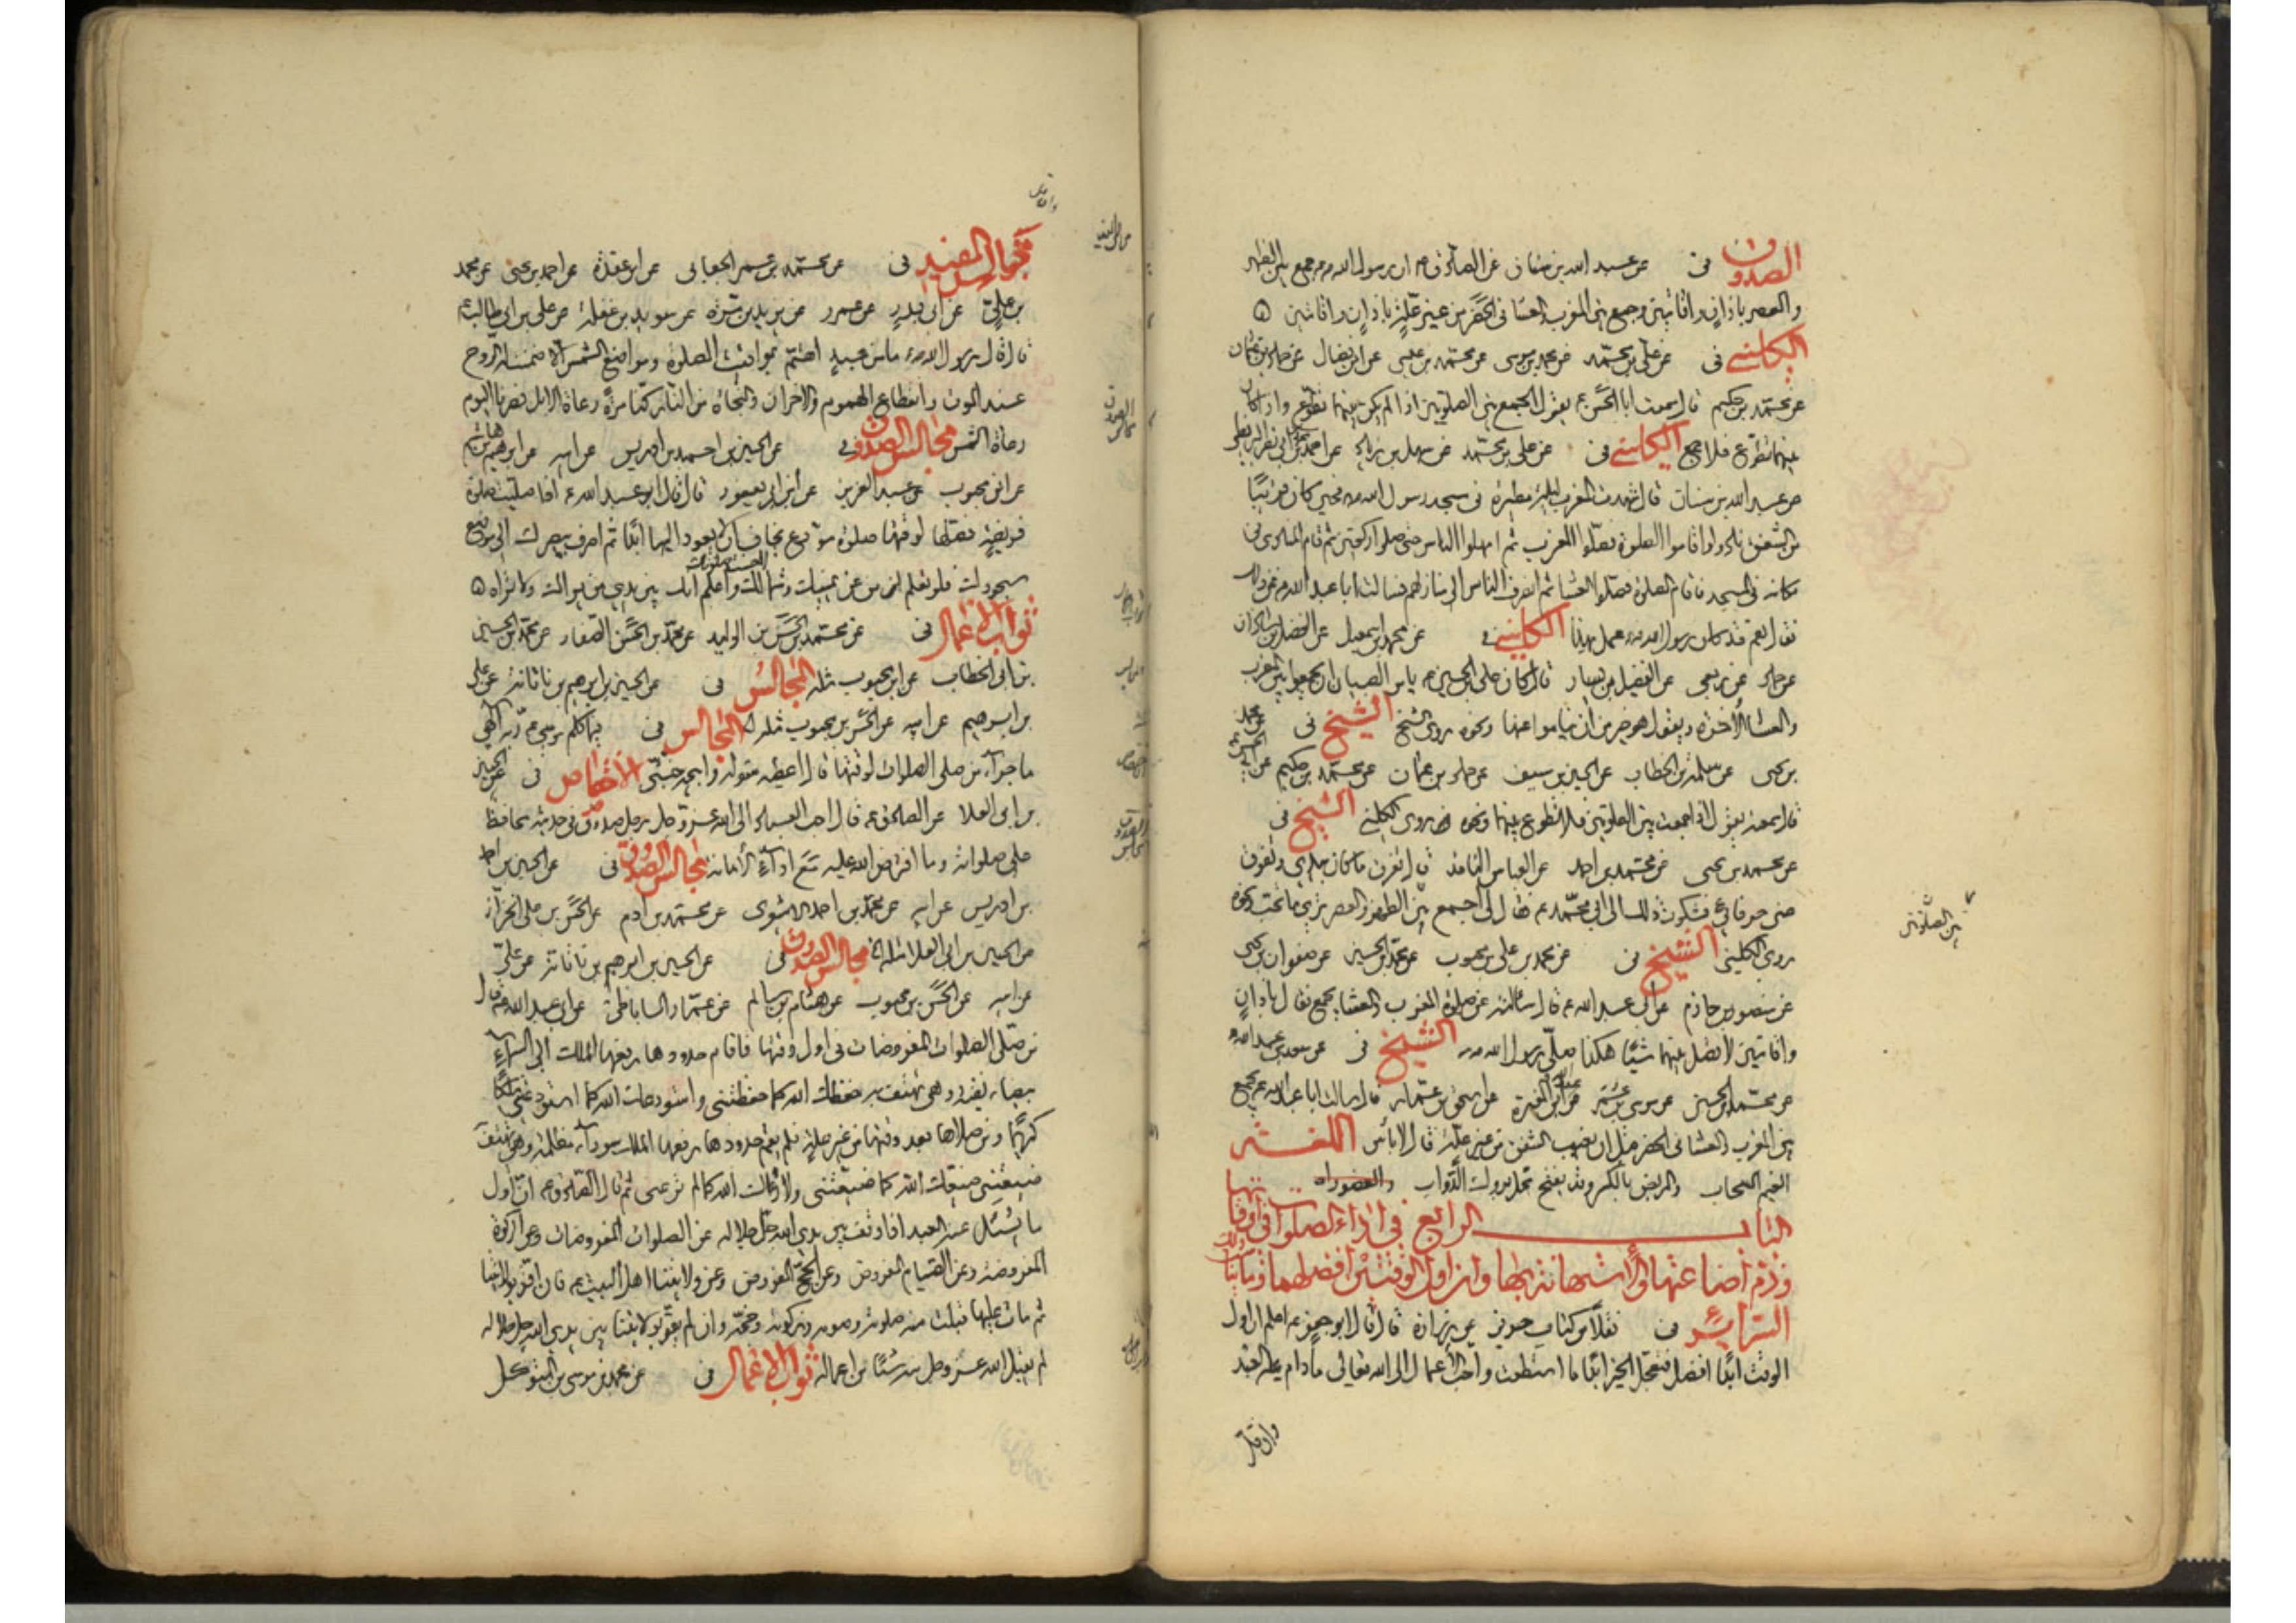 الصدوق في عن عبد الله بن سنان عن الصادق ان رسول الله جمع بين الظهر
والعصر باذان واقامتين وجمع بين المغرب والعشا في الحضر من غير علة باذان واقامتين
الكليني في عن علي بن محمد عن محمد بن موسى عن محمد بن عيسى عن ابن فضال عن حماد بن عثمان
عن محمد بن حكيم قال سمعت ابا الحسن ع يقول الجمع بين الصلوتين اذا لم يكن بينهما تطوع واذا كان
بينهما تطوع فلا جمع الكليني في عن علي بن محمد عن سهل بن زياد عن احمد بن محمد بن ابي نصر
عن عبد الله بن سنان قال شهدت المغرب ليلة مطيرة في مسجد رسول الله فحين كان قريبا
من الشفق نادوا واقاموا الصلوة فصلوا المغرب ثم امهلوا الناس حتى صلوا ركعتين ثم قام المنادي في
مكانه في المسجد فاقام الصلوة فصلوا العشا ثم انصرف الناس الى منازلهم فسالت ابا عبد الله عن ذلك
فقال نعم قد كان رسول الله عمل بهذا الكليني في عن محمد بن اسمعيل عن الفضل بن شاذان
عن حماد عن ربعي عن الفضيل بن يسار قال كان علي بن الحسين ع يامر الصبيان ان يجمعوا بين المغرب
والعشا الاخرة ويقول هو خير من ان يناموا عنها ونحوه روى الشيخ الشيخ في عن محمد
بن يحيى عن سلمة بن الخطاب عن الحسين بن سيف عن حماد بن عثمان عن محمد بن حكيم عن ابي الحسن
قال سمعته يقول اذا جمعت بين الصلوتين فلا تطوع بينهما ونحوه روى الكليني الشيخ في
عن محمد بن يحيى عن محمد بن احمد عن العباس الناقد قال تفرق ما كان بيدي وتفرق
عني حرفائي فشكوت ذلك الى ابي محمد ع فقال لي اجمع بين الظهر والعصر ترى ما تحب ونحوه
روى الكليني الشيخ في عن محمد بن علي بن محبوب عن محمد بن الحسين عن صفوان بن يحيى
عن منصور بن حازم عن ابي عبد الله ع قال سالته عن صلوة المغرب والعشا بجمع فقال باذان
واقامتين لا تصل بينهما شيئا هكذا صلى رسول الله الشيخ في عن سعد بن عبد الله
عن محمد بن الحسين عن موسى بن عمر عن عبد الله بن المغيرة عن اسحق بن عمار قال سالت ابا عبد الله ع نجمع
بين المغرب والعشا في الحضر قبل ان يغيب الشفق من غير علة قال لا باس اللغة
الغيم السحاب والمربض بالكسر وقد يفتح محل بروك الدواب
بين الصلوتين
الباب الرابع في اداء الصلوات في اوقاتها
وذم اضاعتها والاستهانة بها وان اول الوقتين افضلهما
السرائر في نقلا من كتاب حريز عن زرارة قال قال ابو جعفر ع اعلم ان اول
الوقت ابدا افضل فتعجل الخير ابدا ما استطعت واحب الاعمال الى الله تعالى ما دام عليه العبد
وان قل
مجالس المفيد في عن محمد بن عمر الجعابي عن ابن عقدة عن احمد بن يحيى عن محمد
بن علي عن ابي بدر عن عمرو عن يزيد بن مرة عن سويد بن غفلة عن علي بن ابي طالب ع
قال قال رسول الله ما من عبد اهتم بمواقيت الصلوة ومواضع الشمس الا ضمنت له الروح
عند الموت وانقطاع الهموم والاحزان والنجاة من النار كنا مرة رعاة الابل فصرنا اليوم
رعاة الشمس مجالس الصدوق في عن الحسين بن احمد بن ادريس عن ابيه عن ابراهيم بن هاشم
عن ابن محبوب عن عبد العزيز عن ابن ابي يعفور قال قال ابو عبد الله ع اذا صليت صلوة
فريضة فصلها لوقتها صلوة مودع يخاف ان لا يعود اليها ابدا ثم اصرف ببصرك الى موضع
سجودك فلو تعلم من عن يمينك وشمالك لاحسنت صلوتك واعلم انك بين يدي من يراك ولا تراه
ثواب الاعمال في عن محمد بن الحسن بن الوليد عن محمد بن الحسن الصفار عن محمد بن الحسين
بن ابي الخطاب عن ابن محبوب مثله المجالس في عن الحسين بن ابراهيم بن ناتانة عن علي
بن ابراهيم عن ابيه عن الحسن بن محبوب مثله المجالس في فيما كلم موسى ع ربه الهي
ما جزاء من صلى الصلوات لوقتها قال اعطيه سؤله وابيحه جنتي الاختصاص في عن الحسين
بن ابي العلا عن الصادق ع قال احب العباد الى الله عز وجل رجل صدوق في حديثه محافظ
على صلواته وما افترض الله عليه مع اداء الامانة مجالس الصدوق في عن الحسين بن احمد
بن ادريس عن ابيه عن محمد بن احمد الاشعري عن محمد بن ادم عن الحسن بن علي الخزاز
عن الحسين بن ابي العلا مثله مجالس الصدوق في عن الحسين بن ابراهيم بن ناتانة عن علي
عن ابيه عن الحسن بن محبوب عن هشام بن سالم عن عمار الساباطي عن ابي عبد الله ع قال
من صلى الصلوات المفروضات في اول وقتها فاقام حدودها رفعها الملك الى السماء
بيضاء نقية وهي تهتف به حفظك الله كما حفظتني واستودعك الله كما استودعتني ملكا
كريما ومن صلاها بعد وقتها من غير علة فلم يقم حدودها رفعها الملك سوداء مظلمة وهي تهتف
ضيعتني ضيعك الله كما ضيعتني ولا رعاك الله كما لم ترعني ثم قال الصادق ع ان اول
ما يسئل عنه العبد اذا وقف بين يدي الله جل جلاله عن الصلوات المفروضات وعن الزكوة
المفروضة وعن الصيام المفروض وعن الحج المفروض وعن ولايتنا اهل البيت ع فان اقر بولايتنا
ثم مات عليها قبلت منه صلوته وصومه وزكوته وحجه وان لم يقر بولايتنا بين يدي الله جل جلاله
لم يقبل الله عز وجل منه شيئا من اعماله ثواب الاعمال في عن محمد بن موسى بن المتوكل